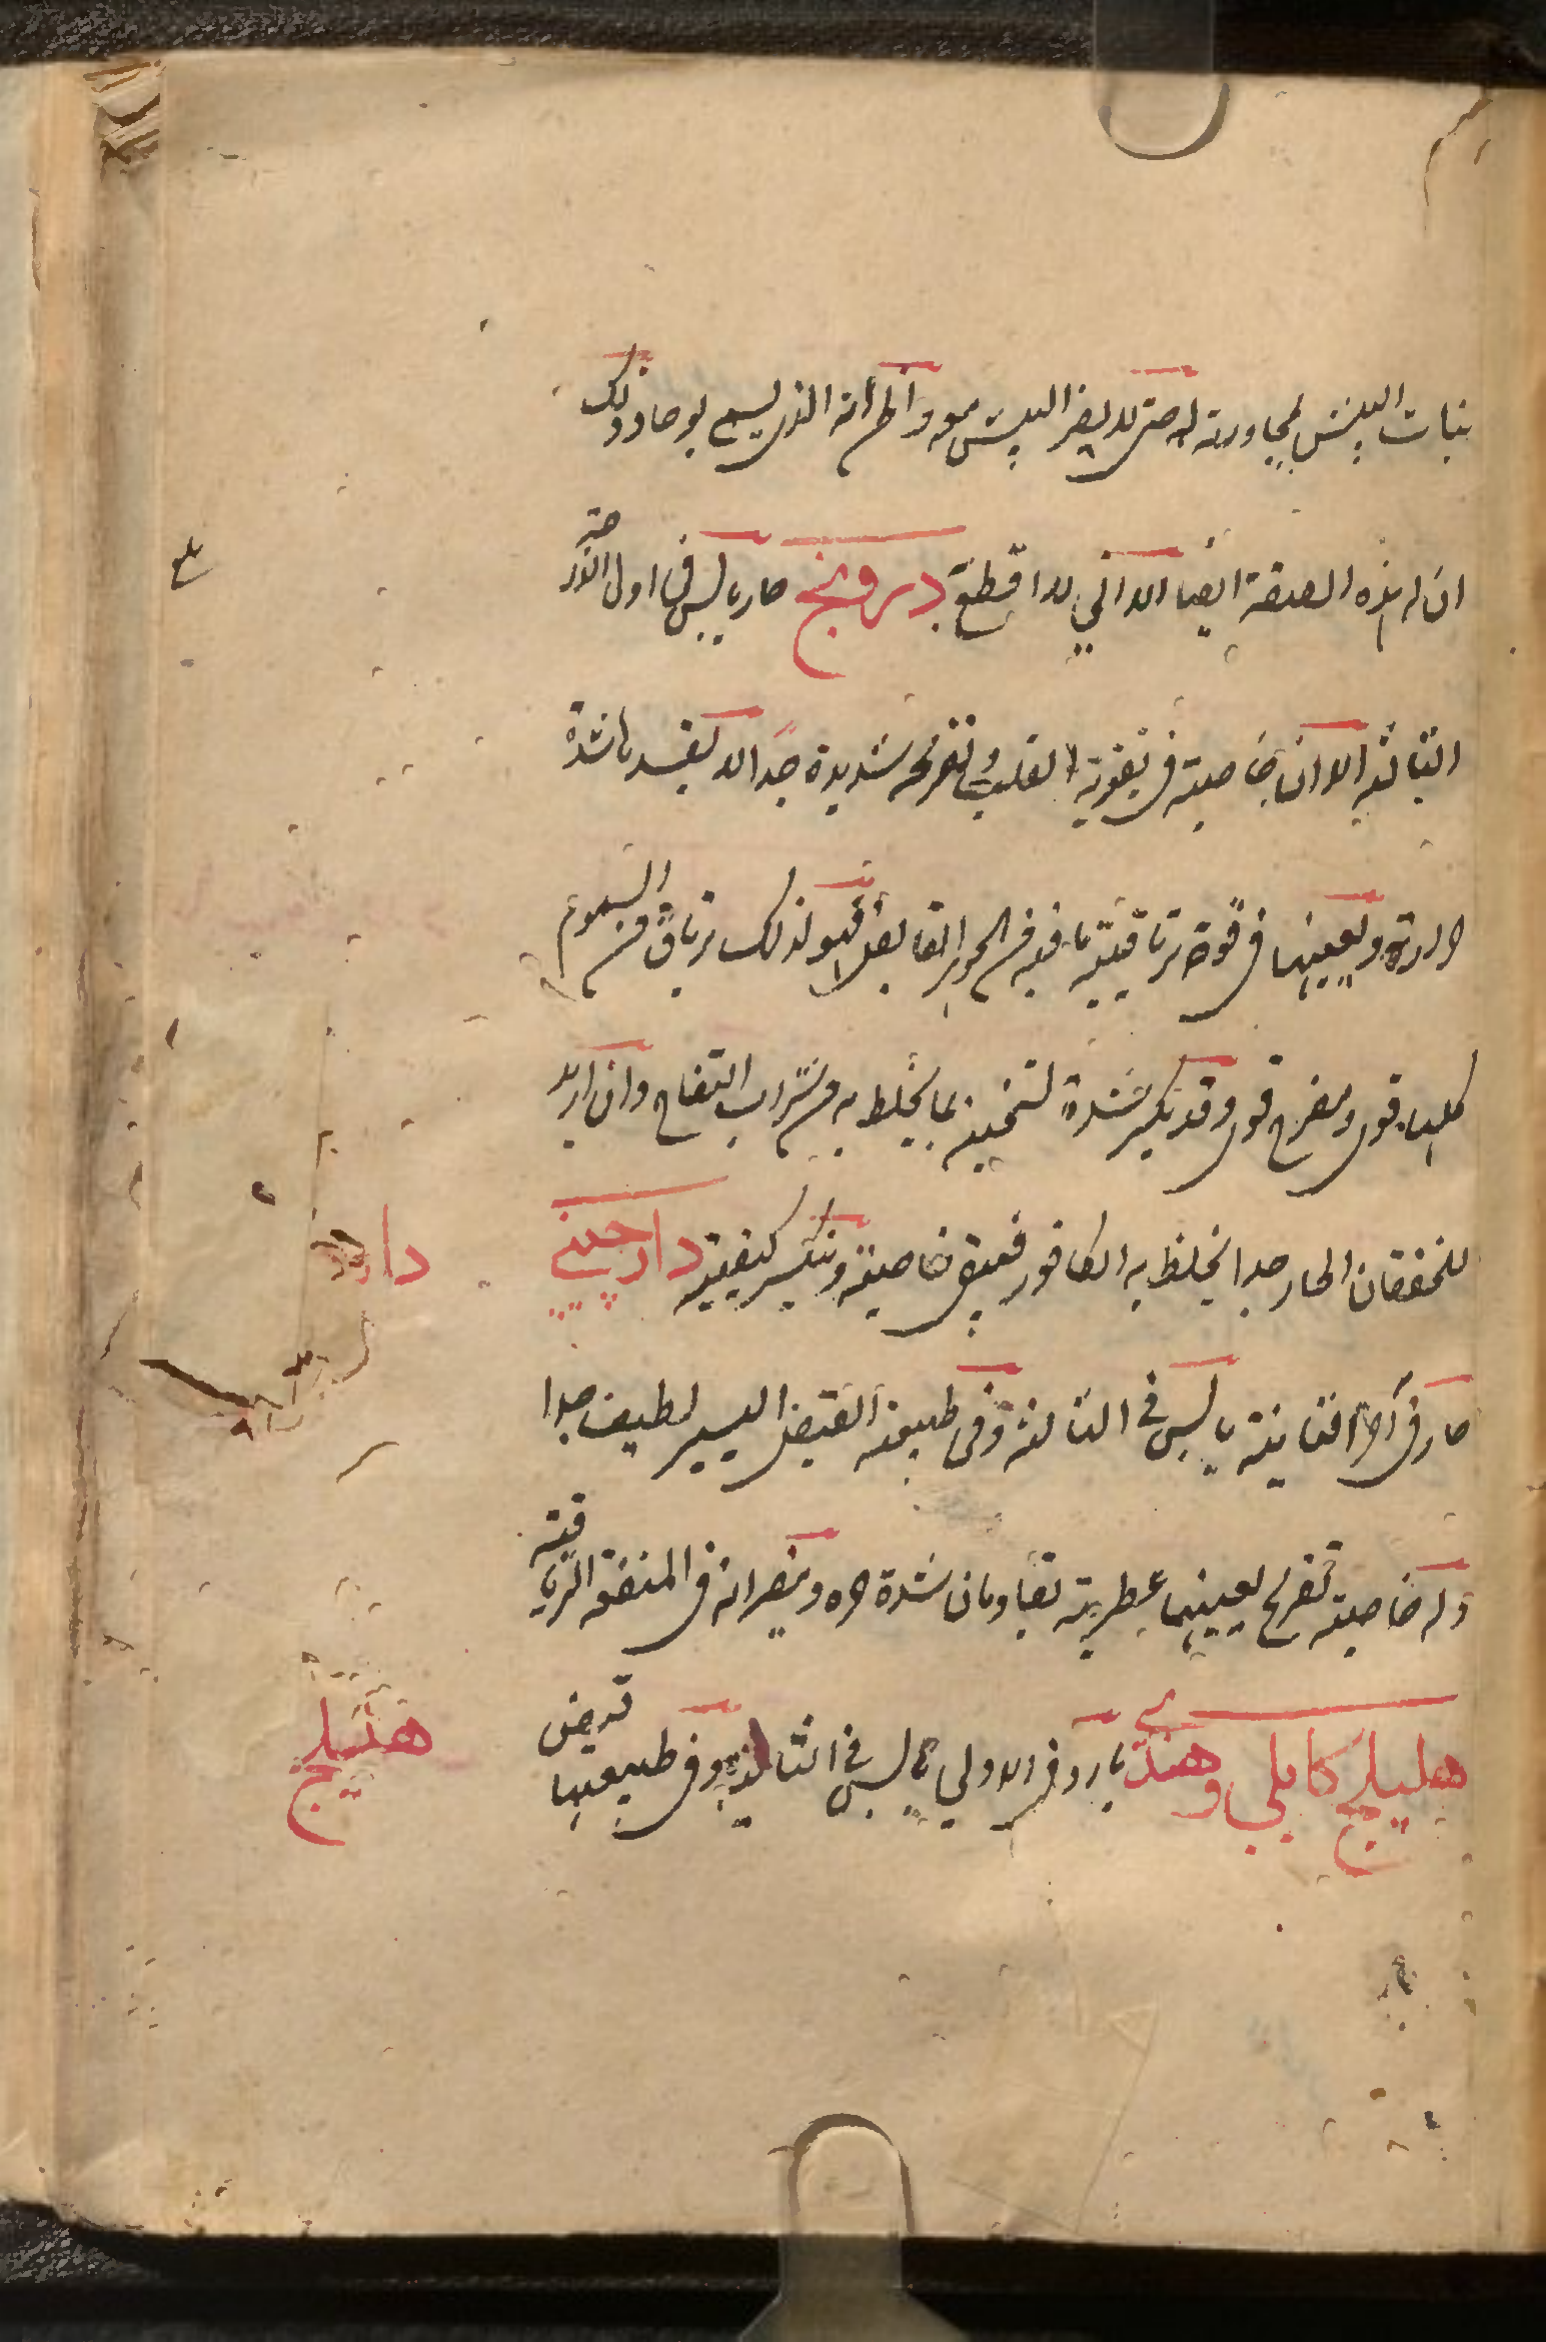 نبات البيش لمجاورته له حتى لا يضر البيش معه واظم انه الذى يسمى بوحا وذلك
ان له هذه الصفة ايضا الا انى لا اقطع درونج حار يابس فى اول الدرجة
بلغ
الثالثة الا ان خاصيته فى تقوية القلب وتفريحه شديدة جدا الا يفسدها شدة
الحرارة ويعينها فى قوة ترياقيته ما فيه من الجوهر القابض فهو لذلك ترياق من السموم
كلها قوى ومفرح قوى وقد تكسر شدة تسخينه بما يخلط به من شراب التفاح وان اريد
للخفقان الحار جدا يخلط به الكافور فيبقى خاصيته وتنكسر كيفيته دارچينى
حار فى آخر الثانية يابس فى الثالثة وفى طبيعته القبض اليسير لطيف جدا
وله خاصية تفريح يعينها عطريته يقاومان شدة حره ويضرانه فى المنفعة الترياقية
هليلج كابلى وهندى بارد فى الاولى يابس فى الثانية وفى طبيعتها قبض
هليلج